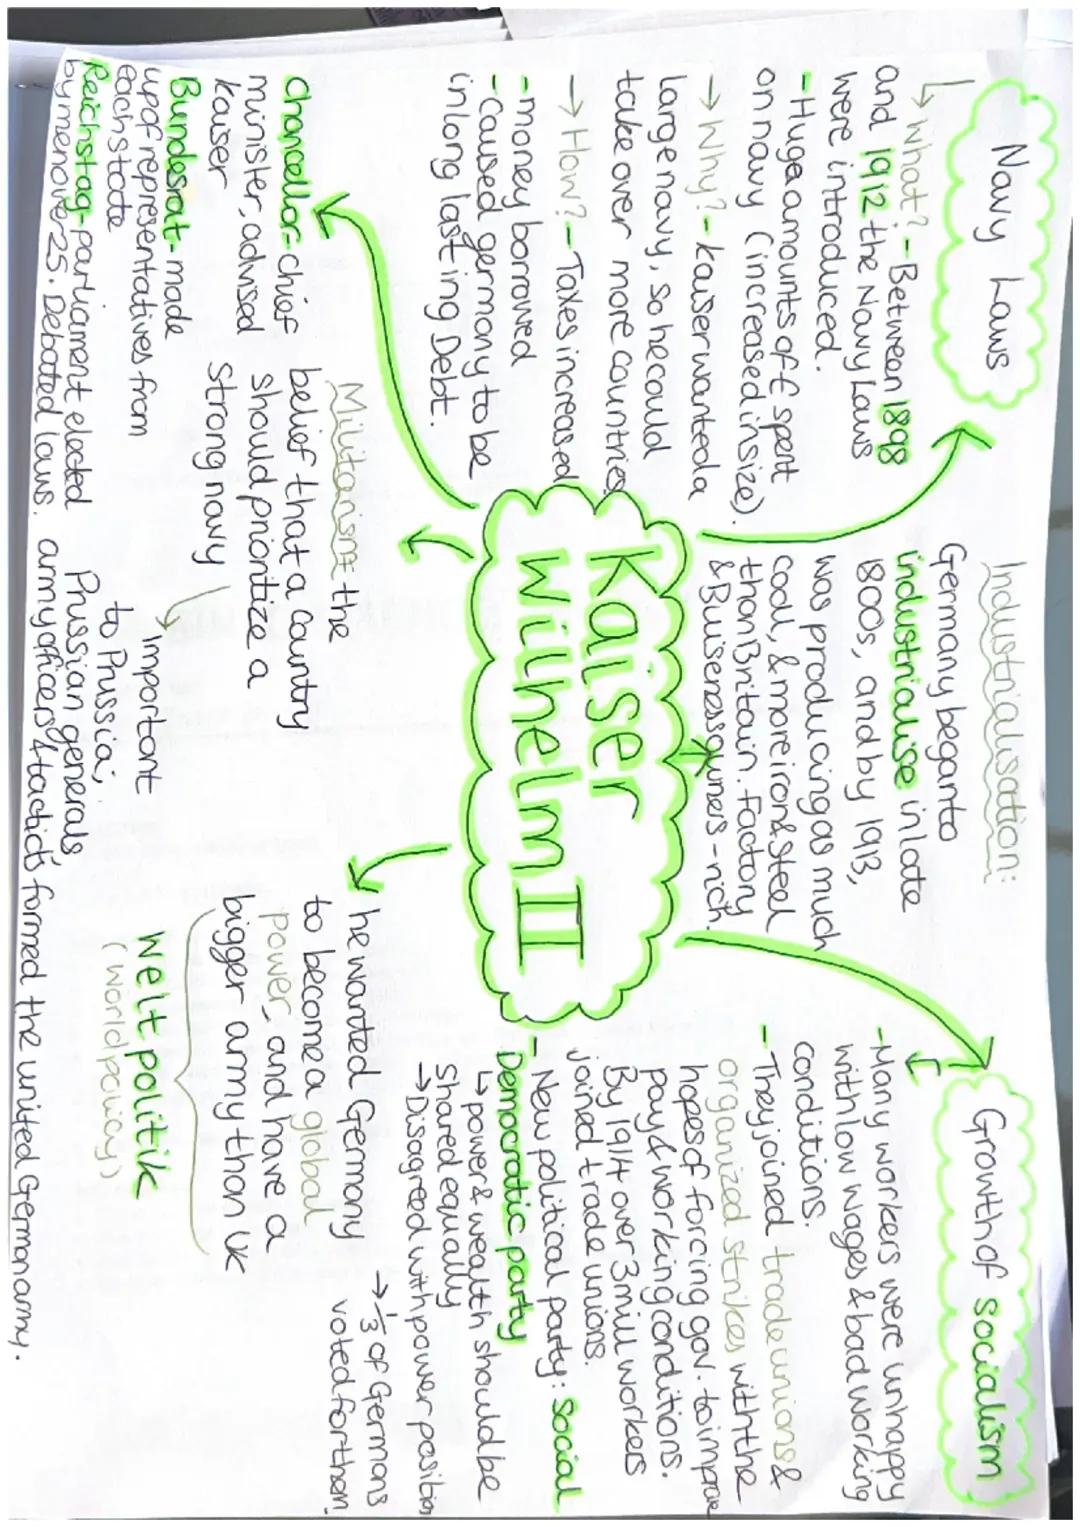 Navy Laws
↳ what? - Between 1898
and 1912 the Navy Laws
were introduced.
- Huge amounts of £ spent
on navy (increased in size).
→ Why? - kauser wanted a
large navy, so he could
take over more countries
→ How? - Taxes increased
- money borrowed
- Caused germany to be
in long lasting Debt.
Industrialisation:
Germany began to
industrialise in late
1800s, and by 1913,
was producing as much
coal, & more iron & steel
than Britain. Factory
& Buiseness owners - rich.
Growth of socialism
- Many workers were unhappy
with low wages & bad working
conditions.
- They joined trade unions &
organized strikes with the
hopes of forcing gov. to improve
pay & working conditions.
By 1914 over 3 mill workers
joined trade unions.
- New political party: Social
Democratic party
↳ power & wealth should be
shared equally
→ Disagreed with power position
→ 1/3 of Germans
voted for them
Kaiser
Wilhelm II
Chancellor - chief
minister, advised
kauser
Bundesrat - made
up of representatives from
each state
Reichstag - parliament elected
by men over 25. Debated laws.
Militarism: the
belief that a country
should prioritize a
strong navy
↳ important
to Prussia;
Prussian generals,
army officers & tactics formed the united German army.
he wanted Germany
to become a global
power, and have a
bigger army than UK
Welt politik
(world policy)